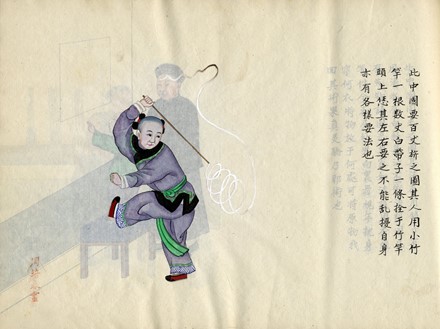 此中國耍百丈旂之圖其人用小竹
竿一根数丈白帶子一條拴于竹竿
頭上恁其左右耍之不能乱擾自身
亦有各樣耍法也